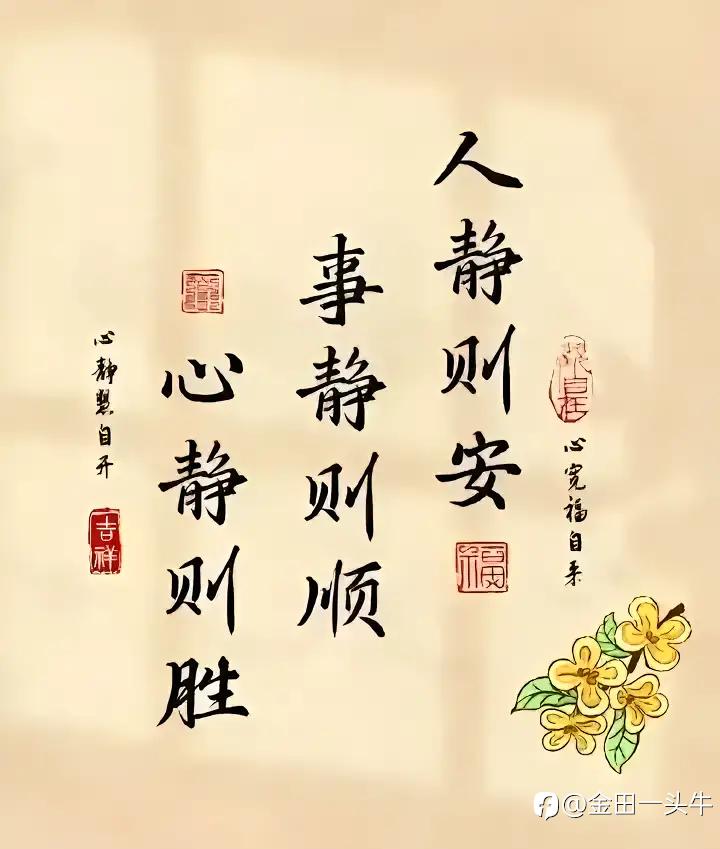 心宽福自来
人静则安
福
事静则顺
心静则胜
心静慧自开
吉祥
@金田一头牛